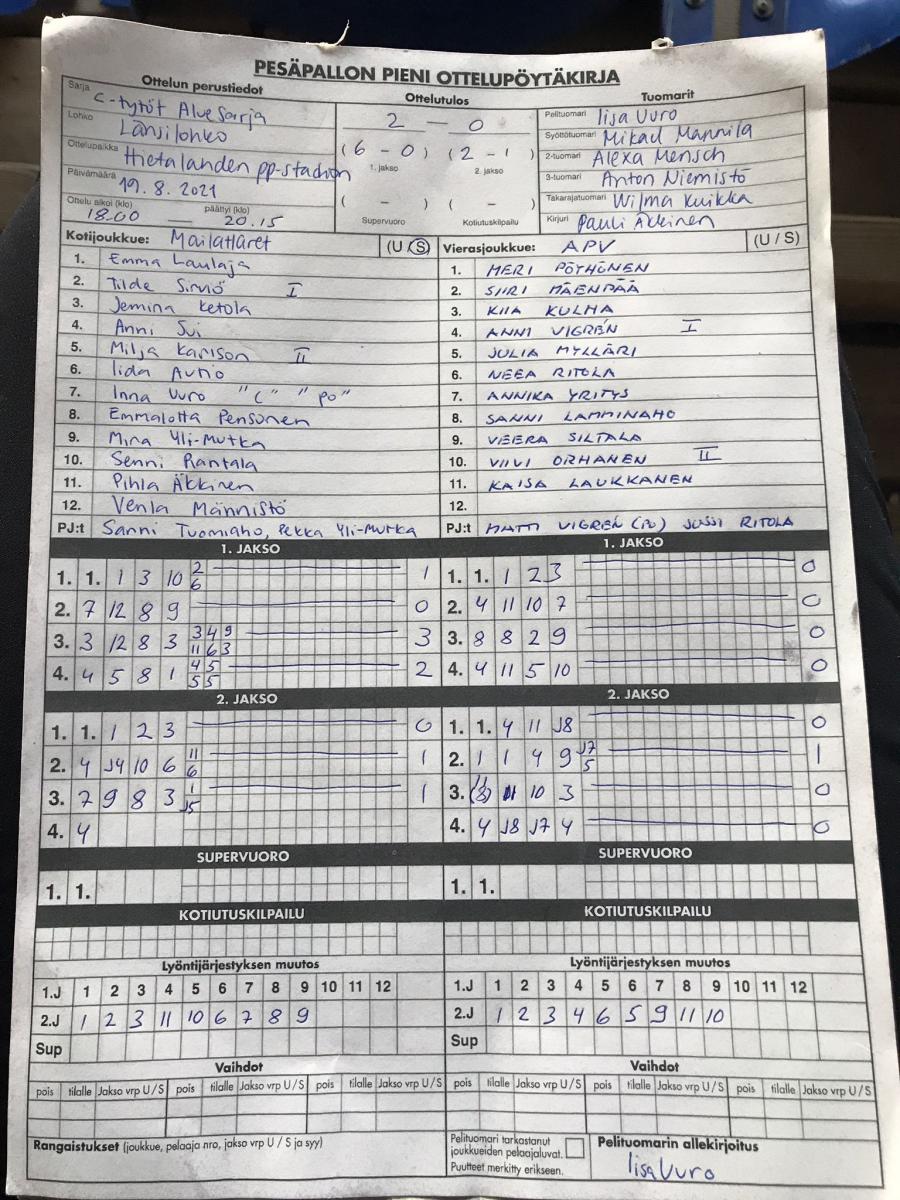 PESÄPALLON PIENI OTTELUPÖYTÄKIRJA
Ottelun perustiedot
Sarja C-tytöt Aluesarja
Lohko Länsilohko
Ottelupaikka Hietalahden pp-stadion
Päivämäärä 19.8.2021
Ottelu alkoi (klo) päättyi (klo)
18.00 — 20.15
Ottelutulos
2 — 0
(6 - 0) (2 - 1)
1. jakso 2. jakso
( - ) ( - )
Supervuoro Kotiutuskilpailu
Tuomarit
Pelituomari Iisa Uuro
Syöttötuomari Mikael Mannila
2-tuomari Alexa Mensch
3-tuomari Anton Niemistö
Takarajatuomari Wilma Kuikka
Kirjuri Pauli Äkkinen
Kotijoukkue: Mailattaret (U / S)
1. Emma Laulaja
2. Tilde Sirviö I
3. Jemina Ketola
4. Anni Sui
5. Milja Karlson II
6. Iida Autio
7. Inna Uuro "C" "PO"
8. Emmalotta Pensonen
9. Mina Yli-Mutka
10. Senni Rantala
11. Pihla Äkkinen
12. Venla Männistö
PJ:t Sanni Tuomiaho, Pekka Yli-Mutka
Vierasjoukkue: APV (U / S)
1. MERI PÖYHÖNEN
2. SIIRI MÄENPÄÄ
3. KIIA KULHA
4. ANNI VIGREN I
5. JULIA MYLLÄRI
6. NEEA RITOLA
7. ANNIKA YRITYS
8. SANNI LAMMINAHO
9. VEERA SILTALA
10. VIIVI ORHANEN II
11. KAISA LAUKKANEN
12.
PJ:t MATTI VIGREN (PO) JUSSI RITOLA
1. JAKSO
1. 1. 1 3 10 2 6 1
2. 7 12 8 9 0
3. 3 12 8 3 3 4 9 11 6 3 3
4. 4 5 8 1 4 5 5 5 2
1. JAKSO
1. 1. 1 2 3 0
2. 4 11 10 7 0
3. 8 8 2 9 0
4. 4 11 5 10 0
2. JAKSO
1. 1. 1 2 3 0
2. 4 J4 10 6 11 6 1
3. 7 9 8 3 1 J5 1
4. 4
2. JAKSO
1. 1. 4 11 J8 0
2. 1 1 4 9 J7 5 1
3. 10 3 0
4. 4 J8 J7 4 0
SUPERVUORO
1. 1.
SUPERVUORO
1. 1.
KOTIUTUSKILPAILU
KOTIUTUSKILPAILU
Lyöntijärjestyksen muutos
1.J 1 2 3 4 5 6 7 8 9 10 11 12
2.J 1 2 3 11 10 6 7 8 9
Sup
Lyöntijärjestyksen muutos
1.J 1 2 3 4 5 6 7 8 9 10 11 12
2.J 1 2 3 4 6 5 9 11 10
Sup
Vaihdot
pois tilalle Jakso vrp U / S pois tilalle Jakso vrp U / S pois tilalle Jakso vrp U / S
Vaihdot
pois tilalle Jakso vrp U / S pois tilalle Jakso vrp U / S pois tilalle Jakso vrp U / S
Rangaistukset (joukkue, pelaaja nro, jakso vrp U / S ja syy)
Pelituomari tarkastanut
joukkueiden pelaajaluvat.
Puutteet merkitty erikseen.
Pelituomarin allekirjoitus
Iisa Uuro